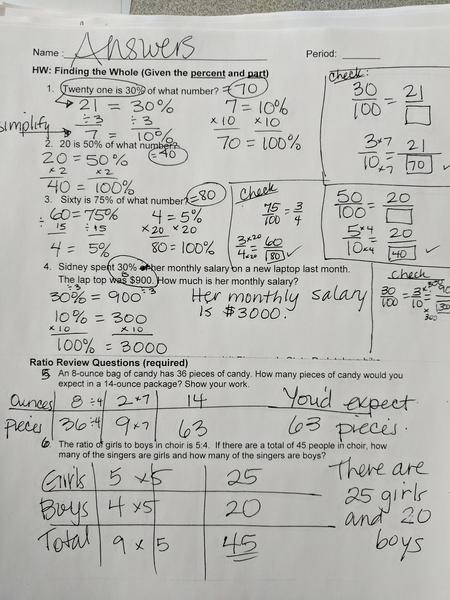 Name : Answers Period:
HW: Finding the Whole (Given the percent and part)
1. Twenty one is 30% of what number? = 70
21 = 30% 7 = 10%
÷3 ÷3 ×10 ×10
simplify 7 = 10% 70 = 100%
check:
30/100 = 21/□
3×7/10×7 = 21/70 ✓
2. 20 is 50% of what number? = 40
20 = 50%
×2 ×2
40 = 100%
50/100 = 20/□
5×4/10×4 = 20/40 ✓
3. Sixty is 75% of what number? = 80
÷ 60 = 75% ÷ 4 = 5%
15 15 ×20 ×20
4 = 5% 80 = 100%
check
75/100 = 3/4
3×20/4×20 = 60/80 ✓
4. Sidney spent 30% of her monthly salary on a new laptop last month.
The lap top was $900. How much is her monthly salary?
÷3 ÷3
30% = 900
10% = 300
×10 ×10
100% = 3000
Her monthly salary
is $3000.
check
30/100 = 3/10
Ratio Review Questions (required)
5. An 8-ounce bag of candy has 36 pieces of candy. How many pieces of candy would you
expect in a 14-ounce package? Show your work.
Ounces 8 ÷4 2 ×7 14
pieces 36 ÷4 9 ×7 63
You'd expect
63 pieces.
6. The ratio of girls to boys in choir is 5:4. If there are a total of 45 people in choir, how
many of the singers are girls and how many of the singers are boys?
Girls 5 ×5 25
Boys 4 ×5 20
Total 9 × 5 45
There are
25 girls
and 20
boys